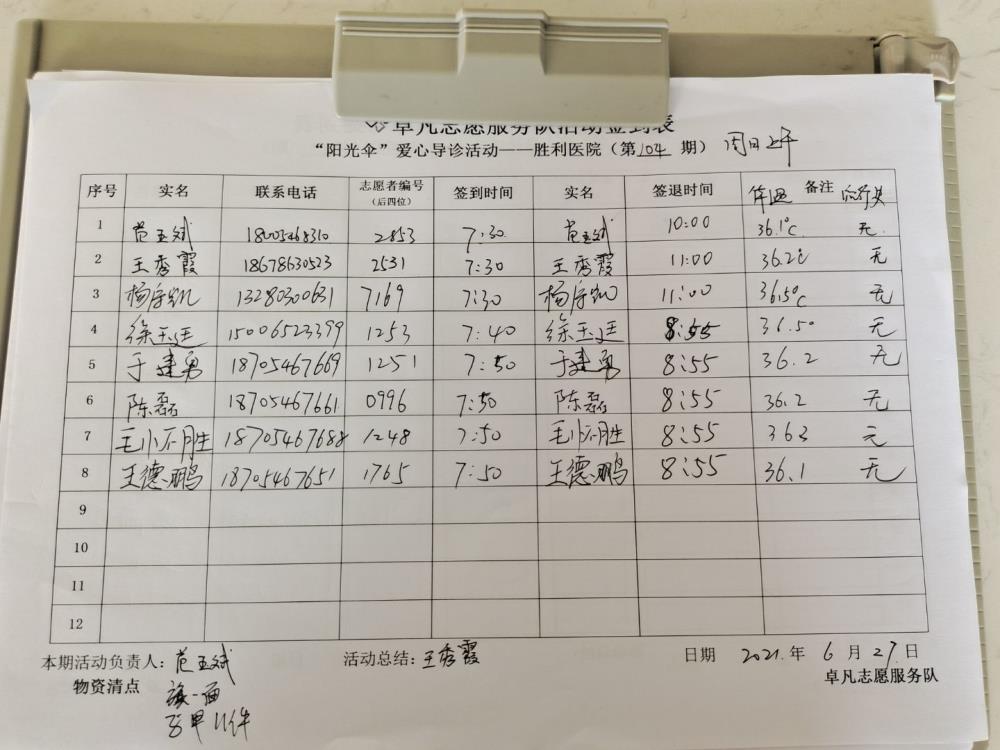 卓凡志愿服务队活动签到表
“阳光伞”爱心导诊活动——胜利医院（第104期） 周日上午
序号 实名 联系电话 志愿者编号（后四位） 签到时间 实名 签退时间 备注 体温
1 范玉斌 18005468310 2853 7:30 范玉斌 10:00 36.1℃ 无
2 王秀霞 18678630523 2531 7:30 王秀霞 11:00 36.2℃ 无
3 13280300631 7169 7:30 11:00 36.5℃ 无
4 徐玉廷 15006523399 1253 7:40 徐玉廷 8:55 36.5° 无
5 于建勇 18705467669 1251 7:50 于建勇 8:55 36.2 无
6 陈磊 18705467661 0996 7:50 陈磊 8:55 36.2 无
7 毛小不胜 18705467688 1248 7:50 8:55 363 无
8 王德鹏 18705467651 1765 7:50 王德鹏 8:55 36.1 无
9
10
11
12
本期活动负责人：范玉斌 活动总结：王秀霞 日期 2021.年 6 月 27 日
物资清点 卓凡志愿服务队
旗一面
马甲11件